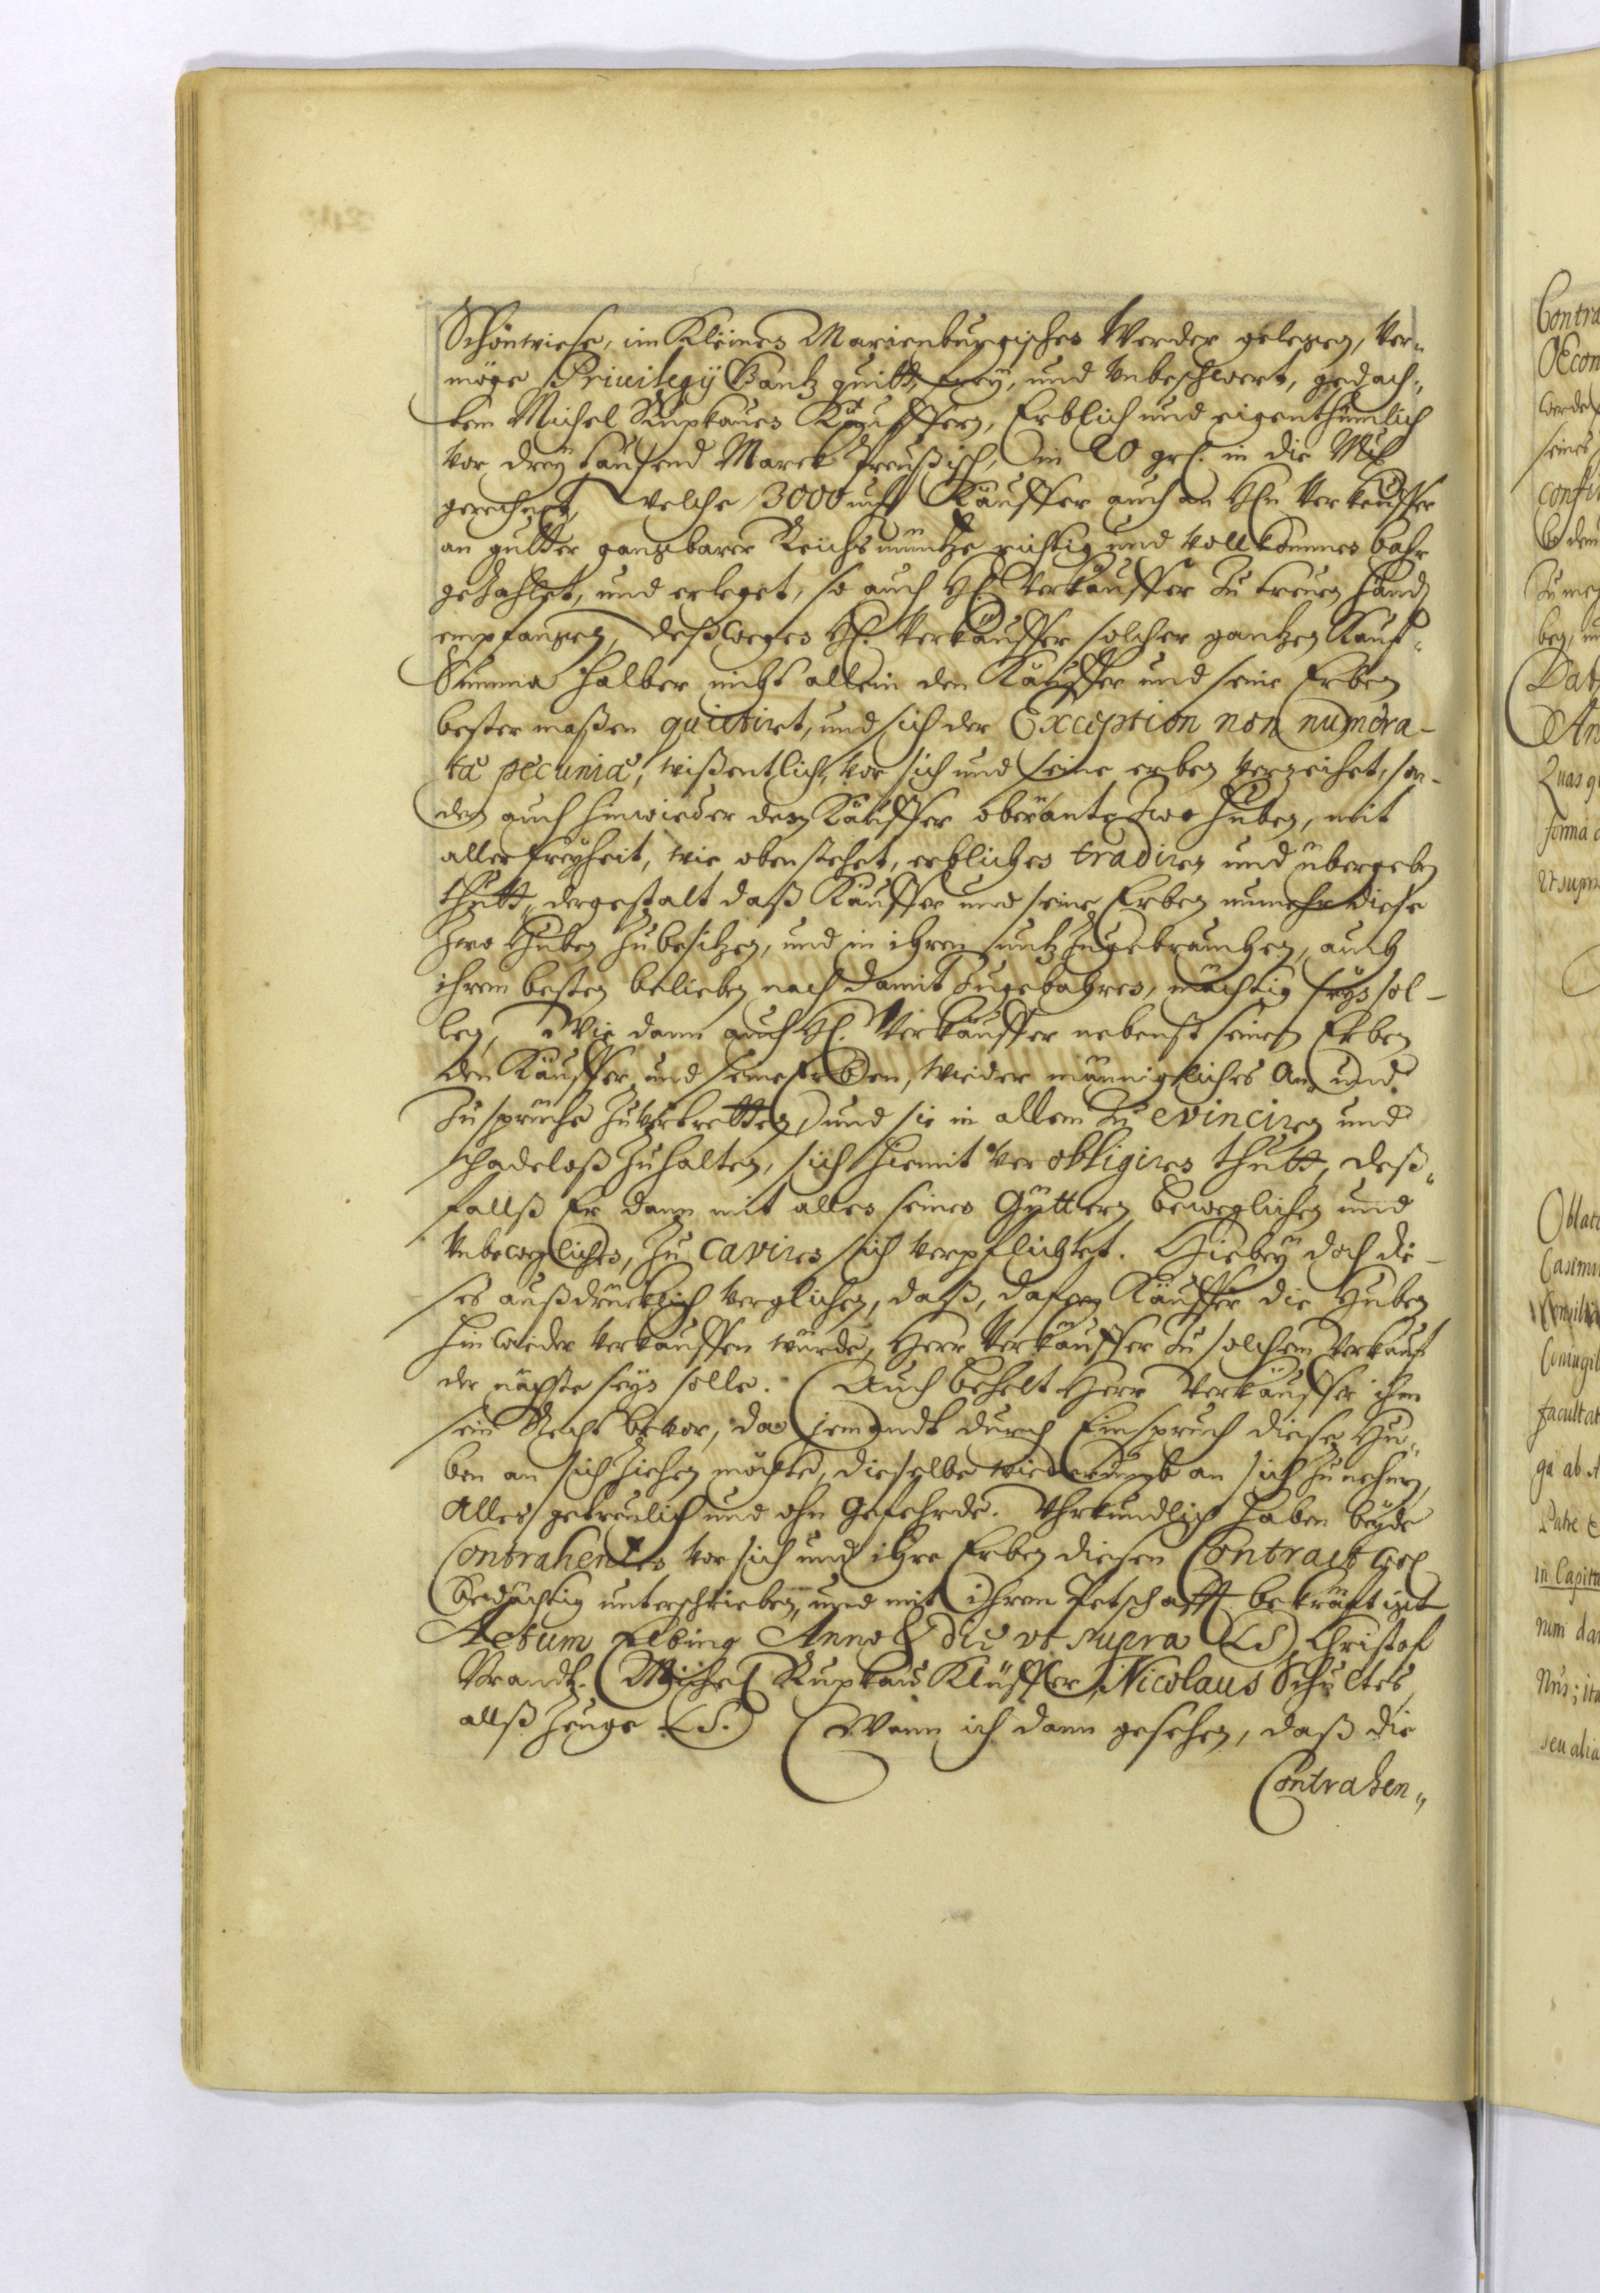 Schönwiese, im Kleinen Marienburgischen Werder gelegen, Ver„
möge Priuilegÿ Gantz quitt, freÿ, und Unbeschwert, gedach„
tem Michel Rupkauen Käuffern, Erblich und eigenthümlich
vor dreÿ tausend Marck Preußisch, in 20 grl. in die Mk
gerechnet, welche 3000 mk Käuffer auch an Hn Verkeuffer
an gutter gangbarer Reichs müntze richtig und vollkommen bahr
gezahlet, und erleget, so auch H. Verkäuffer zu treuen händ
empfangen, deßwegen H. Verkäuffer solcher gantzen Kauf„
Summa halber nicht allein den Käuffer und seine Erben
bester maßen quitiret, und sich der Exception non numera-
ta pecunia, wißentlich, vor sich und seine erben verzeihet, son-
dern auch hinwieder dem Käuffer oberante zwo huben, mit
aller freÿheit, wie oben stehet, erblichen tradiren und übergeben
thutt, dergestalt daß Käuffer und seine Erben nunmehr diese
zwo Huben zubesitzen, und in ihren nutz zugebrauchen, auch
ihrem besten belieben nach damit zugebahren, mächtig seÿn sol-
len, Wie dann auch H. Verkäuffer nebenst seinen Erben
den Käuffer und seine Erben, wieder männigliches An und
zusprüche zuvertretten, und sie in allem zu evinciren und
schadeloß zuhalten, sich hiemit verobligiren thutt, deß„
fallß Er dann mit allen seinen Güttern beweglichen und
Unbeweglichen, zu caviren sich verpflichtet. Hiebeÿ doch die-
ses außdrücklich verglichen, daß, dafern Käuffer die Huben
hinwieder verkauffen würde, Herr Verkäuffer zu solchem Verkauf
der nächste seÿn solle. Auch behelt Herr Verkäuffer ihm
sein Recht bevor, da jemandt durch Einspruch diese Hu„
ben an sich ziehen möchte, dieselbe wiederumb an sich zunehmen,
Alles getreulich und ohn Gefehrde. Uhrkundlich haben beÿde
Contrahenten vor sich und ihre Erben diesen Contract wol
bedächtig unterschrieben, und mit ihrem Petschafft bekräftiget
Actum Elbing Anno & die vt supra (LS) Christof
Brandt. Michel Rupkau Käuffer, Nicolaus Schultes
allß Zeuge (LS.) Wann ich dann gesehen, daß die
Contrahen„